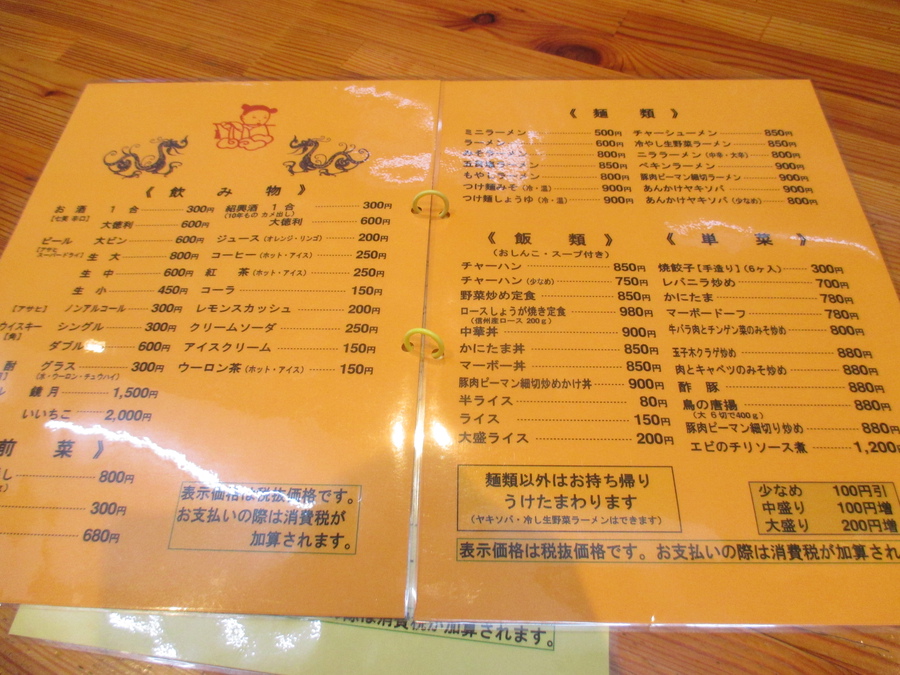 《 飲 み 物 》
お 酒 １ 合 300円
[七笑 辛口]
大徳利 600円
ビール 大ビン 600円
[アサヒスーパードライ] 生 大 800円
生 中 600円
生 小 450円
[アサヒ] ノンアルコール 300円
ウイスキー シングル 300円
[角]
ダブル 600円
酎 グラス 300円
(水・ウーロン・チュウハイ)
鏡 月 1,500円
いいちこ 2,000円
紹興酒 １ 合 300円
(10年もの カメ出し)
大徳利 600円
ジュース (オレンジ・リンゴ) 200円
コーヒー (ホット・アイス) 250円
紅 茶 (ホット・アイス) 250円
コーラ 150円
レモンスカッシュ 200円
クリームソーダ 250円
アイスクリーム 150円
ウーロン茶 (ホット・アイス) 150円
前 菜 》
800円
300円
680円
表示価格は税抜価格です。
お支払いの際は消費税が
加算されます。
《 麺 類 》
ミニラーメン 500円
ラーメン 600円
みそラーメン 800円
五目ラーメン 850円
もやしラーメン 800円
つけ麺みそ (冷・温) 900円
つけ麺しょうゆ (冷・温) 900円
チャーシューメン 850円
冷やし生野菜ラーメン 850円
ニララーメン (中辛・大辛) 800円
ペキンラーメン 900円
豚肉ピーマン細切ラーメン 900円
あんかけヤキソバ 900円
あんかけヤキソバ (少なめ) 800円
《 飯 類 》
(おしんこ・スープ付き)
チャーハン 850円
チャーハン (少なめ) 750円
野菜炒め定食 850円
ロースしょうが焼き定食 980円
(信州産ロース 200ｇ)
中華丼 900円
かにたま丼 850円
マーボー丼 850円
豚肉ピーマン細切炒めかけ丼 900円
半ライス 80円
ライス 150円
大盛ライス 200円
《 単 菜 》
焼餃子 [手造り] (6ヶ入) 300円
レバニラ炒め 700円
かにたま 780円
マーボードーフ 780円
牛バラ肉とチンゲン菜のみそ炒め 800円
玉子木クラゲ炒め 880円
肉とキャベツのみそ炒め 880円
酢 豚 880円
鳥の唐揚 880円
(大 6切で400ｇ)
豚肉ピーマン細切り炒め 880円
エビのチリソース煮 1,200円
麺類以外はお持ち帰り
うけたまわります
(ヤキソバ・冷し生野菜ラーメンはできます)
少なめ 100円引
中盛り 100円増
大盛り 200円増
表示価格は税抜価格です。お支払いの際は消費税が加算され
際は消費税が加算されます。